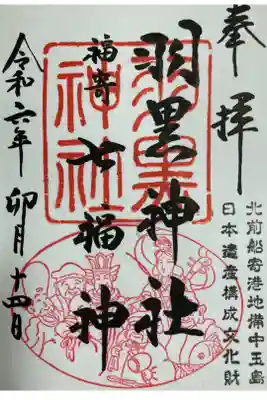 奉拝
北前船寄港地備中玉島
日本遺産構成文化財
羽黒神社
福寄 七福神
令和六年 卯月十四日
羽黒神社